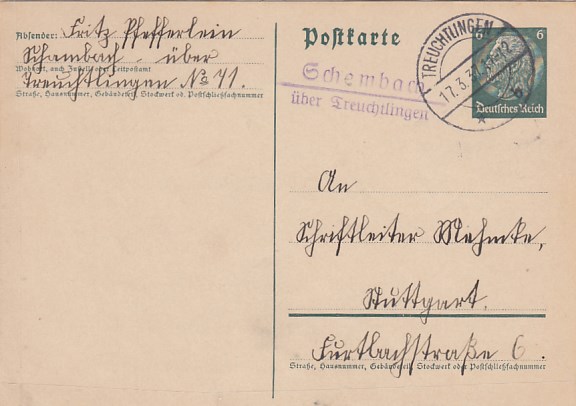 Absender: Fritz Pfefferlein
Schambach über
Wohnort, auch Zustell- oder Leitpostamt
Treuchtlingen No 71.
Straße, Hausnummer, Gebäudeteil, Stockwerk od. Postschließfachnummer
Postkarte
TREUCHTLINGEN
17.3.
6 6
Deutsches Reich
Schembach
über Treuchtlingen
An
Schriftleiter Mehmke,
Stuttgart.
Furtbachstraße 6.
Straße, Hausnummer, Gebäudeteil, Stockwerk oder Postschließfachnummer